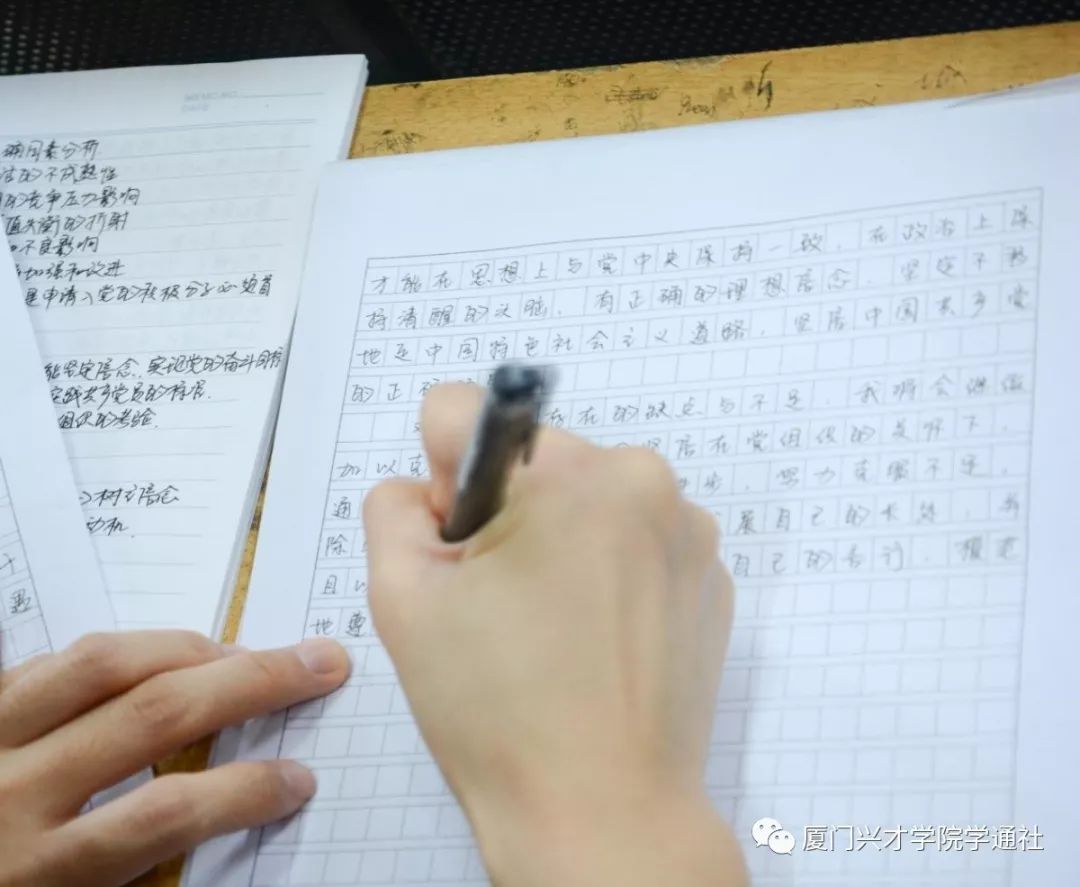 确因素分析
的不成熟性
的竞争压力影响
值失衡的折射
不良影响
加强和改进
是申请入党的积极分子必须首
能坚定信念、实现党的奋斗目标
实践共产党员的标准
组织的考验.
树立信念
动机.
才能在思想上与党中央保持一致，在政治上保
持清醒的头脑，有正确的理想信念，坚定不移
地走中国特色社会主义道路，坚信中国共产党
的正确
存在的缺点与不足，我将会继续
加以克 坚信在党组织的关怀下，
通 步，努力克服不足，
除 展自己的长处，并
且以 自己的言行，模范
地遵
厦门兴才学院学通社